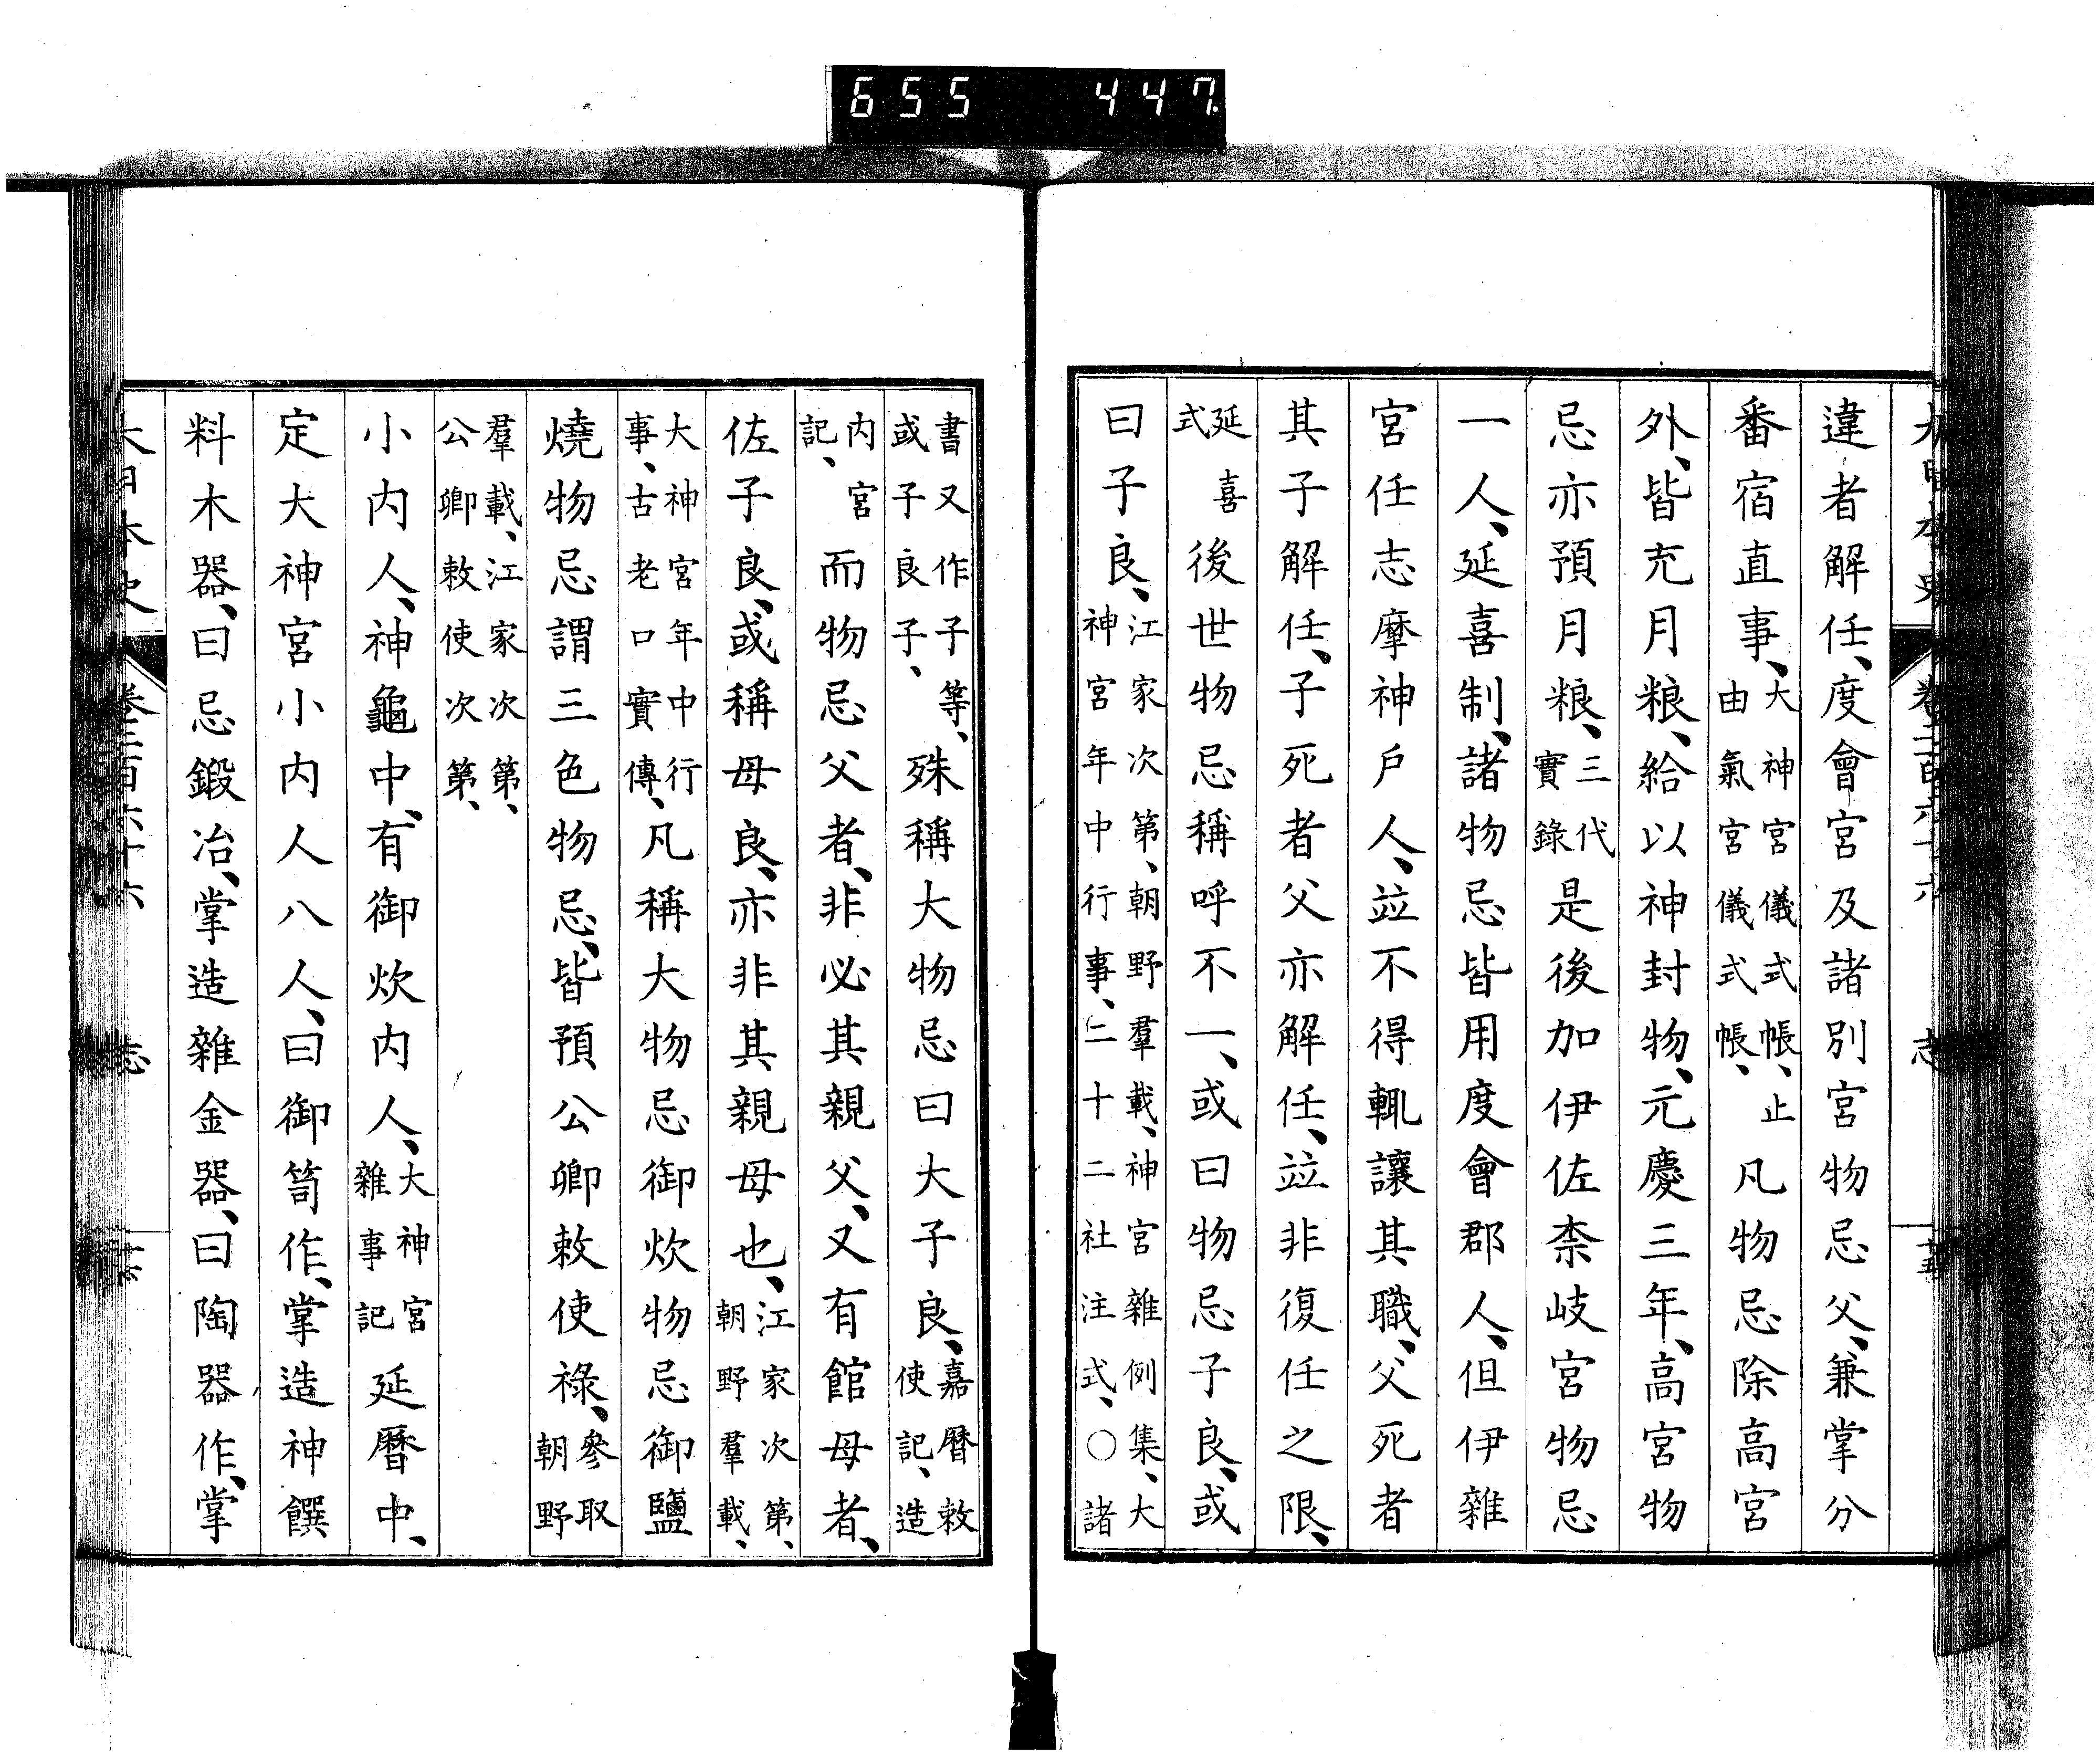 655 447
違者解任、度會宮及諸別宮物忌父、兼掌分
番宿直事、大神宮儀式帳、止由氣宮儀式帳、凡物忌除高宮
外、皆充月粮、給以神封物、元慶三年、高宮物
忌亦預月粮、三代實錄是後加伊佐柰岐宮物忌
一人、延喜制、諸物忌皆用度會郡人、但伊雜
宮任志摩神戶人、竝不得輒讓其職、父死者
其子解任、子死者父亦解任、竝非復任之限、
延喜式後世物忌稱呼不一、或曰物忌子良、或
曰子良、江家次第、朝野羣載、神宮雜例集、大神宮年中行事、二十二社注式、○諸
書又作子等、或子良子、殊稱大物忌曰大子良、嘉曆敕使記、造
内宮記、而物忌父者、非必其親父、又有館母者、
佐子良、或稱母良、亦非其親母也、江家次第、朝野羣載、
大神宮年中行事、古老口實傳、凡稱大物忌御炊物忌御鹽
燒物忌謂三色物忌、皆預公卿敕使祿、參取朝野
羣載、江家次第、公卿敕使次第、
小内人、神龜中、有御炊内人、大神宮雜事記延曆中、
定大神宮小内人八人、曰御笥作、掌造神饌
料木器、曰忌鍛冶、掌造雜金器、曰陶器作、掌
大日本史 卷二百六十六 志